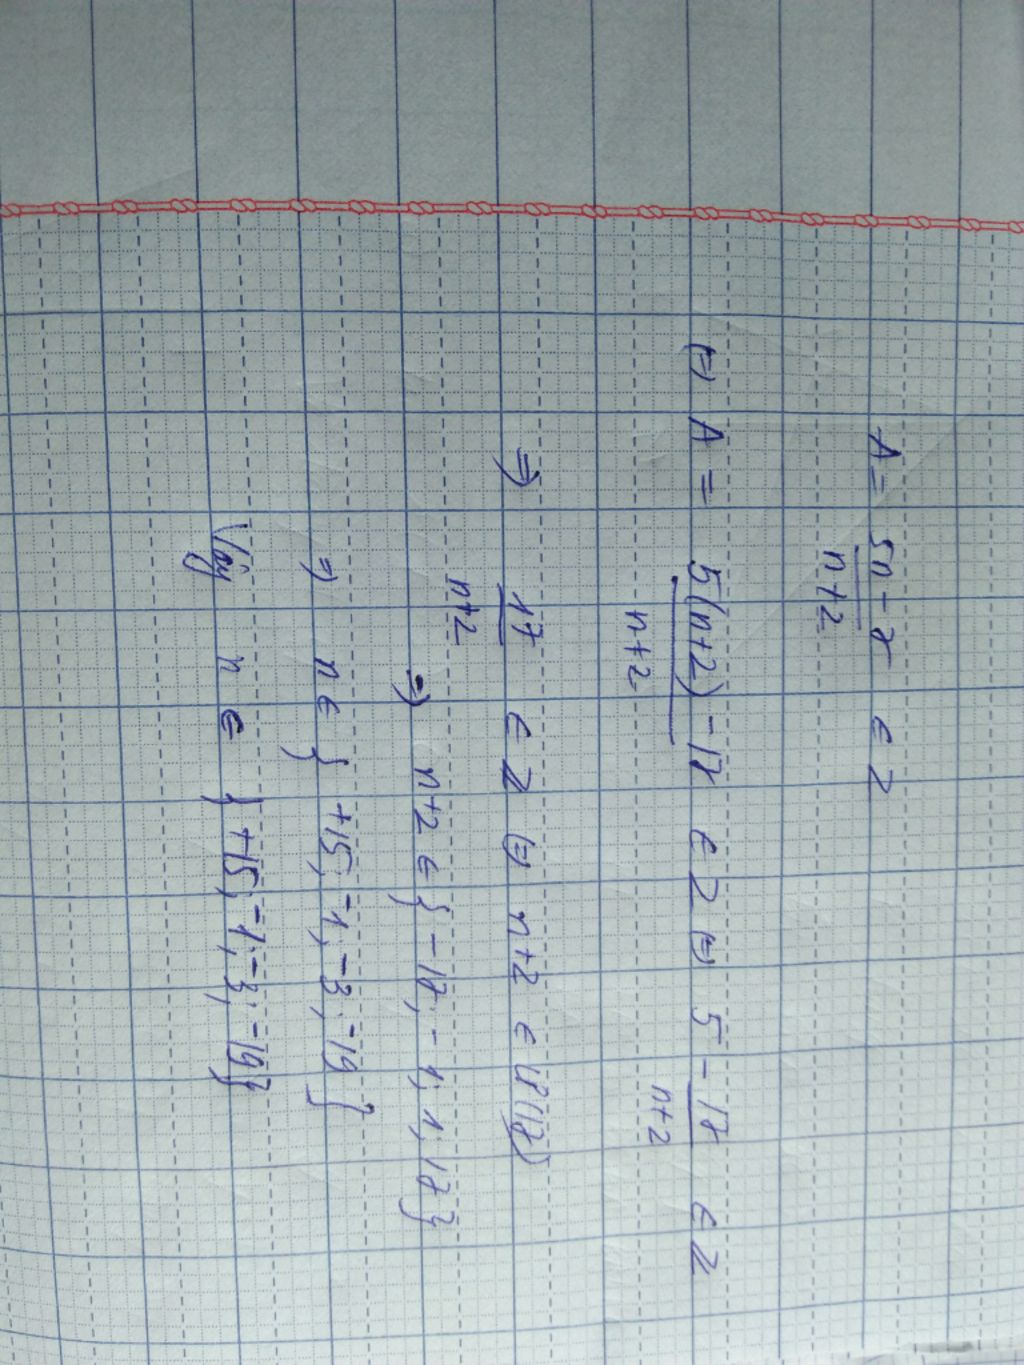 A = 5n - 7 / n+2 ∈ Z
⇔ A = 5(n+2) - 17 / n+2 ∈ Z ⇔ 5 - 17 / n+2 ∈ Z
⇒ 17 / n+2 ∈ Z ⇔ n+2 ∈ Ư(17)
⇒ n+2 ∈ { -17; -1; 1; 17 }
⇒ n ∈ { +15; -1; -3; -19 }
Vậy n ∈ { +15; -1; -3; -19 }